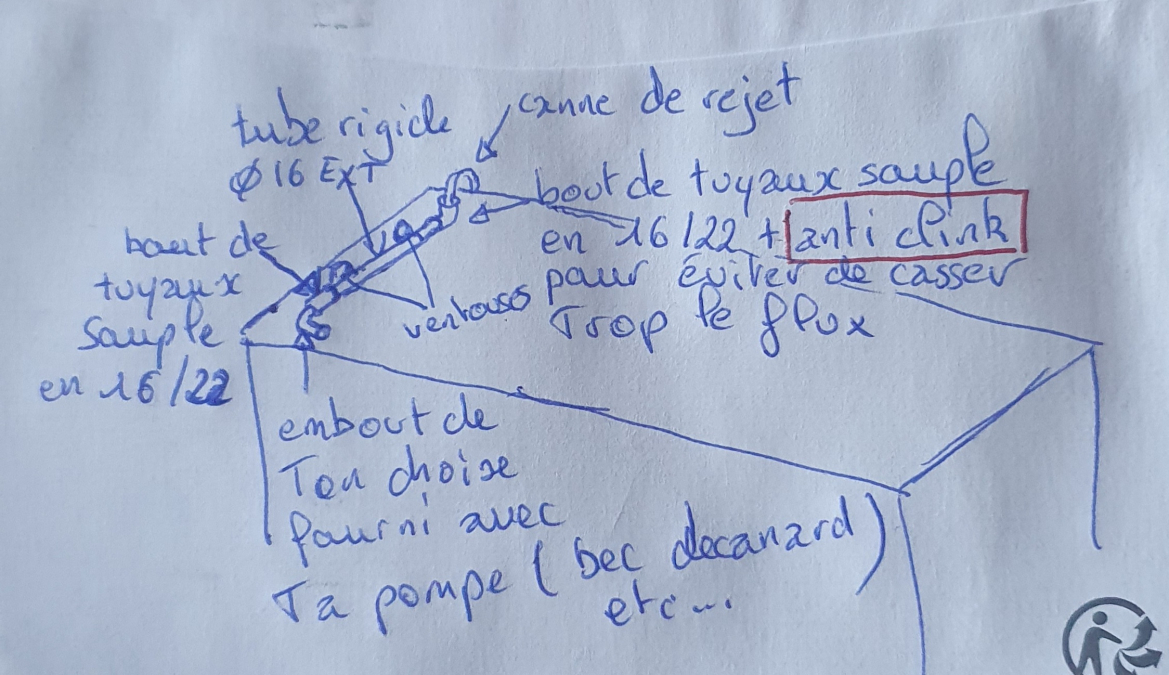 canne de rejet
tube rigide
Ø 16 EXT
bout de tuyaux souple
en 16/22 + anti clink
pour éviter de casser
Trop le flux
bout de
tuyaux
souple
en 16/22
ventouses
embout de
Ton choixe
fourni avec
Ta pompe (bec decanard)
etc...